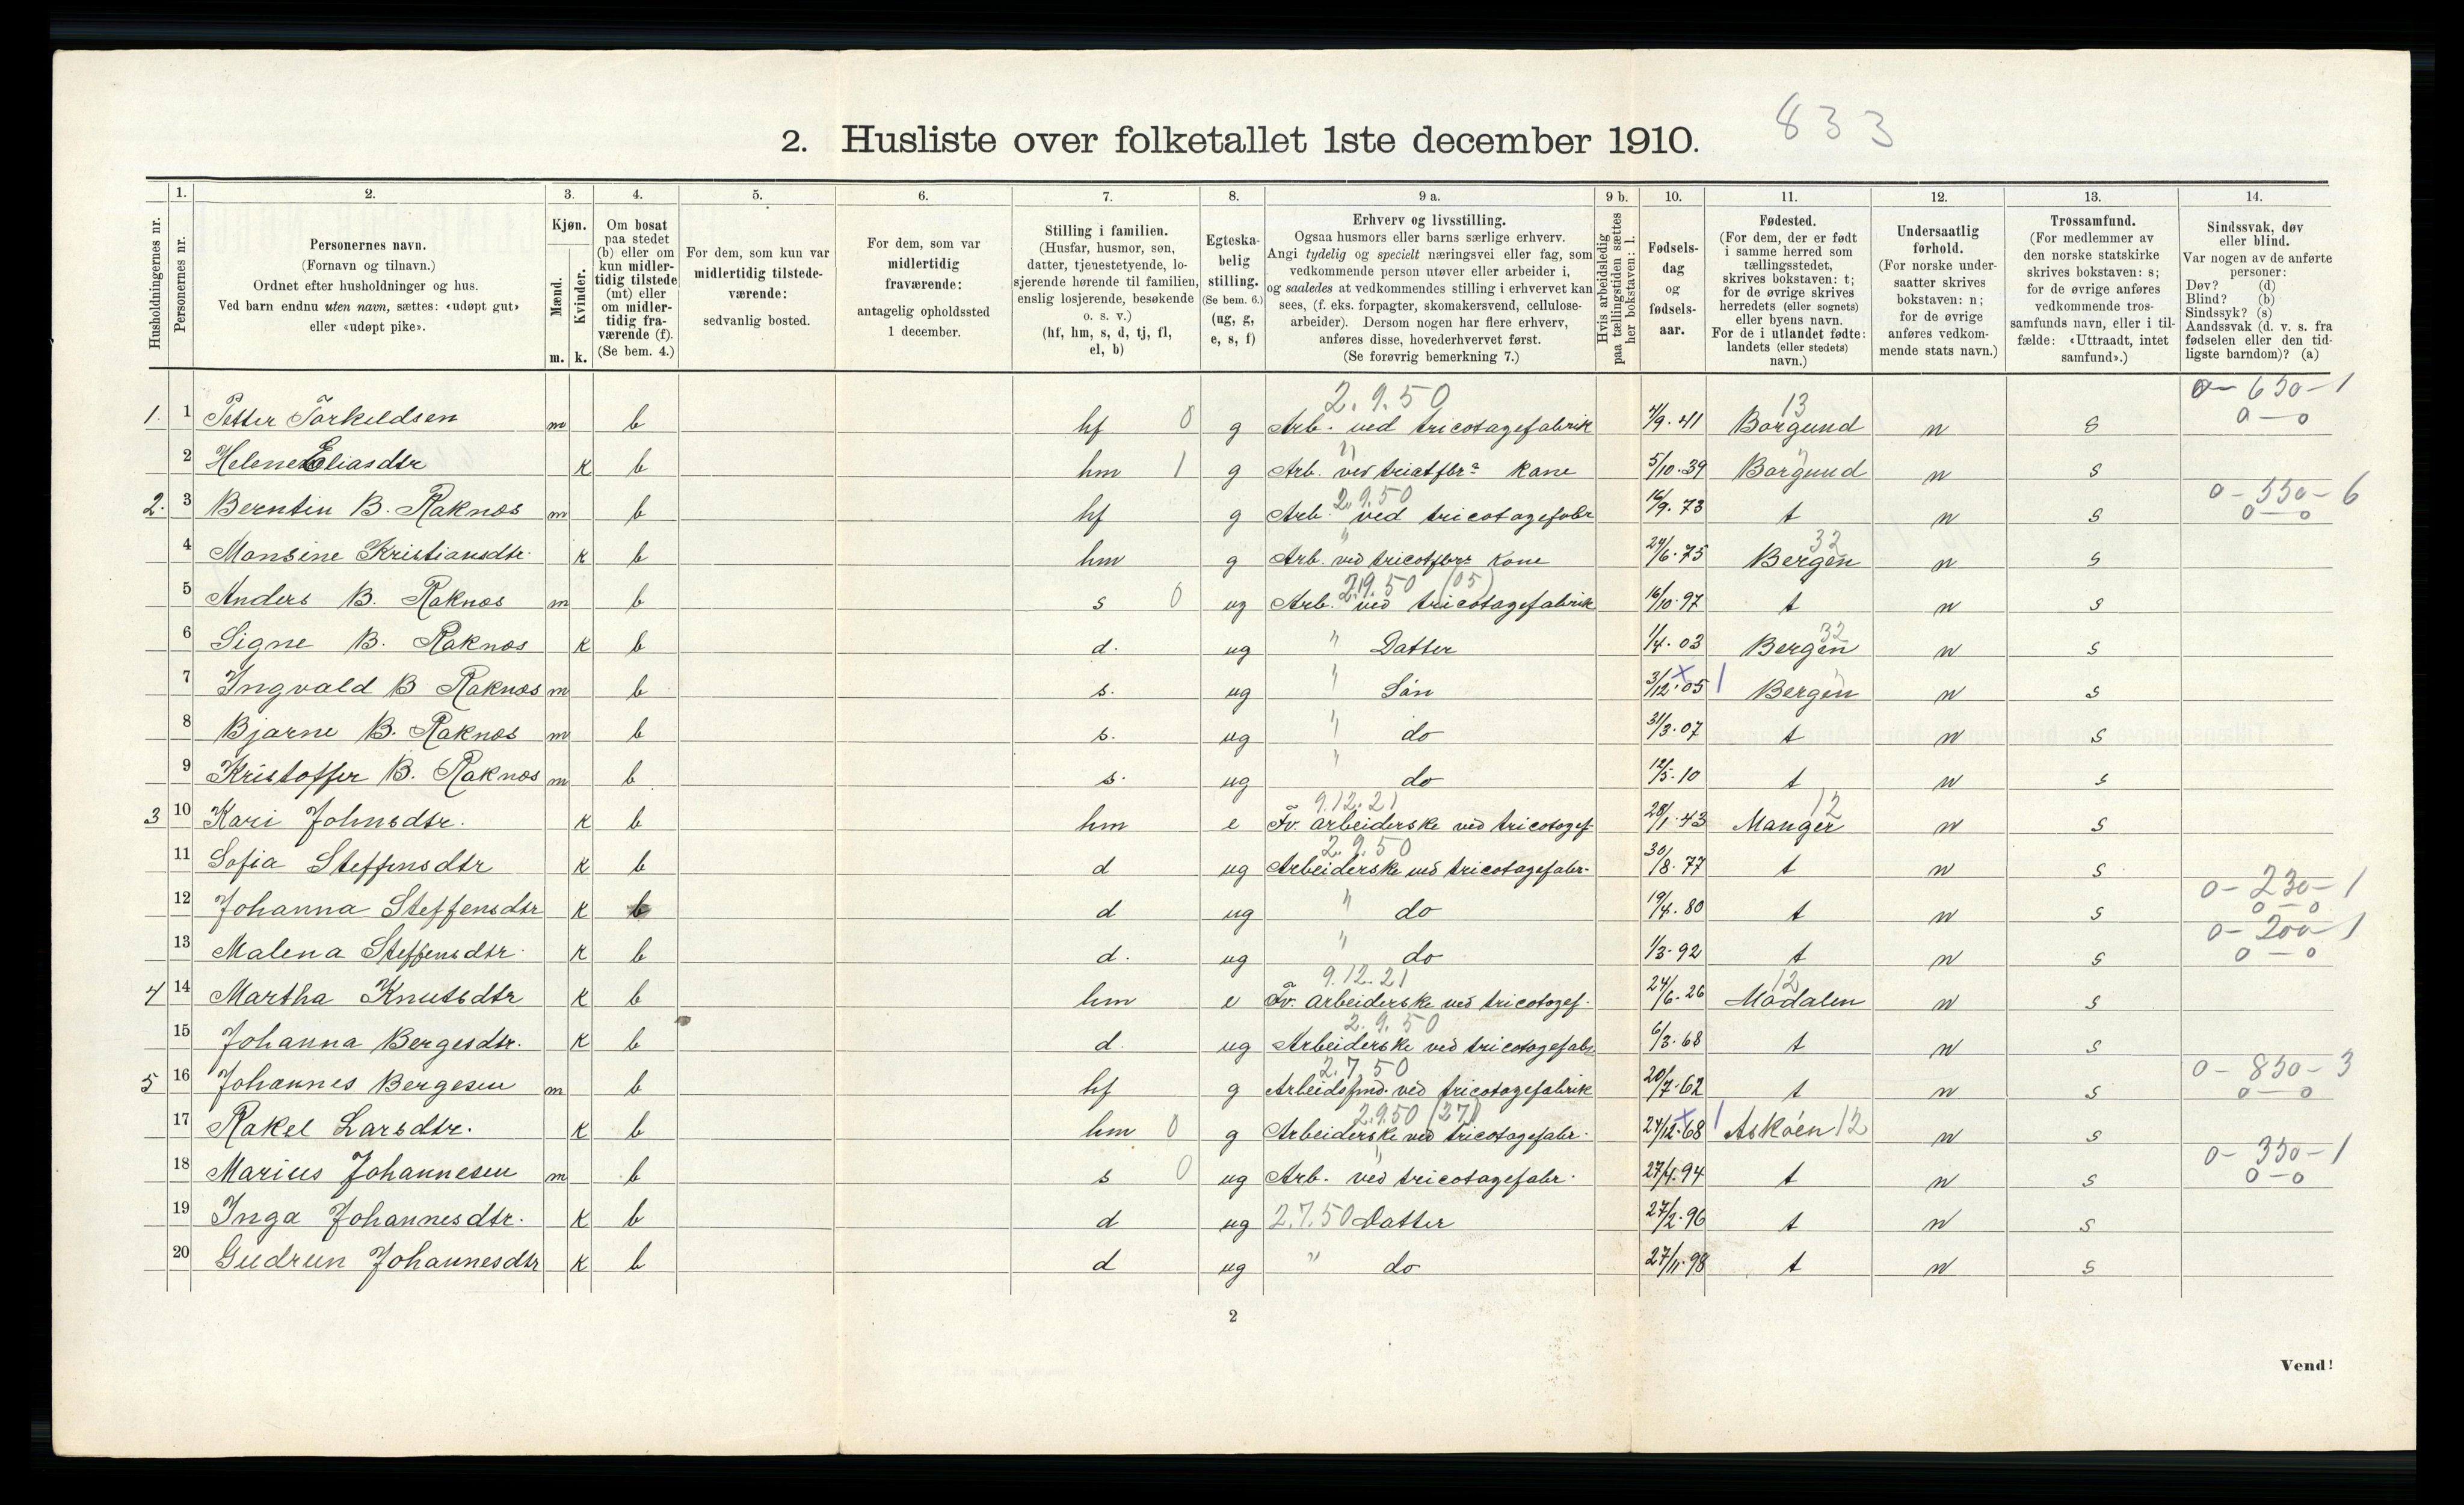 833
2. Husliste over folketallet 1ste december 1910.
Husholdningernes nr.
1. Personernes nr.
2. Personernes navn. (Fornavn og tilnavn.) Ordnet efter husholdninger og hus. Ved barn endnu uten navn, sættes: «udøpt gut» eller «udøpt pike».
3. Kjøn. Mænd. m. Kvinder. k.
4. Om bosat paa stedet (b) eller om kun midlertidig tilstede (mt) eller om midlertidig fraværende (f). (Se bem. 4.)
5. For dem, som kun var midlertidig tilstedeværende: sedvanlig bosted.
6. For dem, som var midlertidig fraværende: antagelig opholdssted 1 december.
7. Stilling i familien. (Husfar, husmor, søn, datter, tjenestetyende, losjerende hørende til familien, enslig losjerende, besøkende o. s. v.) (hf, hm, s, d, tj, fl, el, b)
8. Egteskabelig stilling. (Se bem. 6.) (ug, g, e, s, f)
9 a. Erhverv og livsstilling. Ogsaa husmors eller barns særlige erhverv. Angi tydelig og specielt næringsvei eller fag, som vedkommende person utøver eller arbeider i, og saaledes at vedkommendes stilling i erhvervet kan sees, (f. eks. forpagter, skomakersvend, cellulosearbeider). Dersom nogen har flere erhverv, anføres disse, hovederhvervet først. (Se forøvrig bemerkning 7.)
9 b. Hvis arbeidsledig paa tællingstiden sættes her bokstaven: l.
10. Fødselsdag og fødselsaar.
11. Fødested. (For dem, der er født i samme herred som tællingsstedet, skrives bokstaven: t; for de øvrige skrives herredets (eller sognets) eller byens navn. For de i utlandet fødte: landets (eller stedets) navn.)
12. Undersaatlig forhold. (For norske undersaatter skrives bokstaven: n; for de øvrige anføres vedkommende stats navn.)
13. Trossamfund. (For medlemmer av den norske statskirke skrives bokstaven: s; for de øvrige anføres vedkommende trossamfunds navn, eller i tilfælde: «Uttraadt, intet samfund».)
14. Sindssvak, døv eller blind. Var nogen av de anførte personer: Døv? (d) Blind? (b) Sindssyk? (s) Aandssvak (d. v. s. fra fødselen eller den tidligste barndom)? (a)
2.9.50 13 0-650-1
1. 1 Petter Torkildsen m b hf 0 g Arb. ved tricotagefabrik 4/9.41 Borgund n s 0-0
2 Helene Eliasdtr k b hm 1 g Arb. ved tricotfbr. Kone 5/10.39 Borgund n s
2.9.50 0-550-6
2. 3 Berntin B. Raknes m b hf g Arb. ved tricotagefabr 16/9.73 t n s 0-0
4 Monsine Kristiansdtr. k b hm g Arb. ved tricotfbr. Kone 24/6.75 Bergen 32 n s
2.9.50 (05)
5 Anders B. Raknes m b s 0 ug Arb. ved tricotagefabrik 16/10.97 t n s
6 Signe B. Raknes k b d. ug " Datter 1/4.03 Bergen 32 n s
7 Ingvald B Raknes m b s. ug " Søn 3/12.05 Bergen n s
8 Bjarne B. Raknes m b s. ug " do 31/3.07 t n s
9 Kristoffer B. Raknes m b s. ug " do 12/5.10 t n s
9.12.21 12
3 10 Kari Johnsdtr. k b hm e Fv. arbeiderske ved tricotagef. 28/1.43 Manger n s
2.9.50
11 Sofia Steffensdtr k b d ug Arbeiderske ved tricotagefabr. 30/8.77 t n s
0-230-1
12 Johanna Steffensdtr k b d ug " do 19/4.80 t n s 0-0
0-200-1
13 Malena Steffensdtr. k b d. ug " do 1/3.92 t n s 0-0
9.12.21 12
4 14 Martha Knutsdtr k b hm e Fv. arbeiderske ved tricotagef. 24/6.26 Modalen n s
2.9.50
15 Johanna Bergesdtr. k b d. ug Arbeiderske ved tricotagefabr 6/3.68 t n s
2.7.50 0-850-3
5 16 Johannes Bergesen m b hf g Arbeidsfmd. ved tricotagefabrik 20/7.62 t n s 0-0
2.9.50 (27)
17 Rakel Larsdtr. k b hm 0 g Arbeiderske ved tricotagefabr. 24/12.68 Askøen 12 n s
0-350-1
18 Marius Johannesen m b s 0 ug Arb. ved tricotagefabr. 27/4.94 t n s 0-0
19 Inga Johannesdtr. k b d ug 2.7.50 Datter 27/2.96 t n s
20 Gudrun Johannesdtr k b d ug " do 27/11.98 t n s
2
Vend!